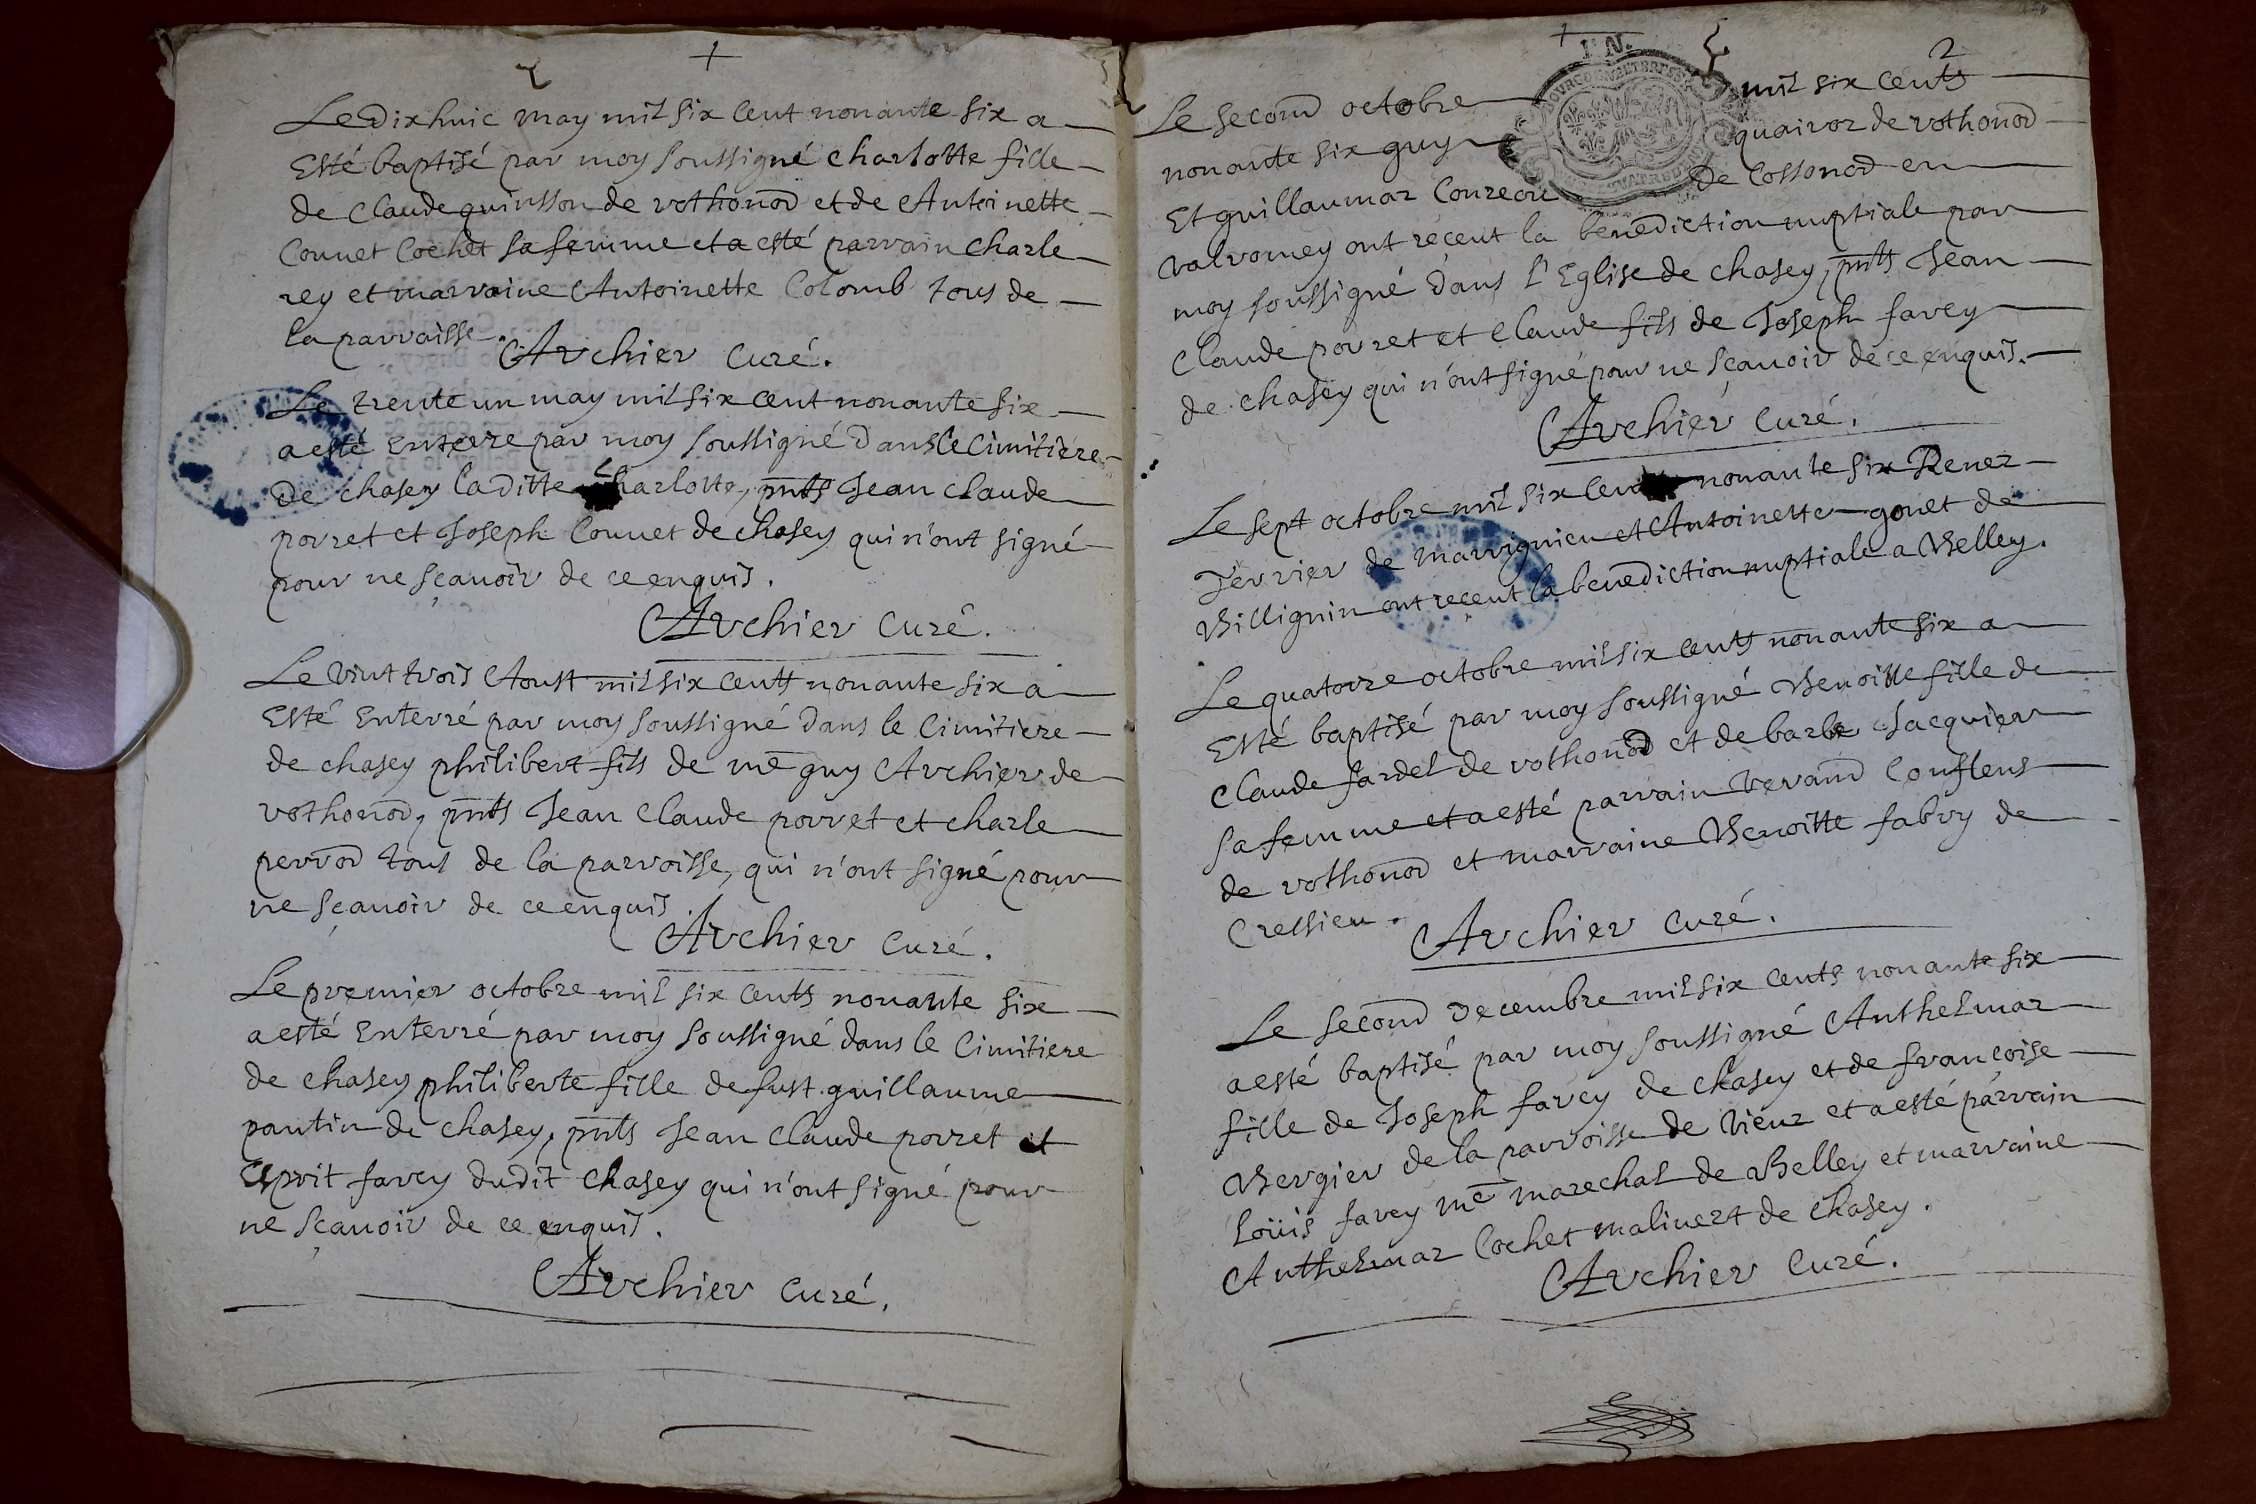 Le dixhuic may mil six cent nonante six a
Esté baptisé par moy soussigné charlotte fille
de Claude quinsson de vothonod et de Antoinette
Connet Cochet sa femme et a esté parrain Charle
rey et marraine Antoinette Colomb tous de
la parroisse.
Archier Curé.
Le trente un may mil six cent nonante six
a esté Enterre par moy soussigné dans le Cimitiere
de chasey laditte charlotte, pnts Jean claude
porret et Joseph Connet de chasey qui n'ont signé
pour ne sçauoir de ce enquis.
Archier Curé.
Le vint trois Aoust mil six cents nonante six a
Esté Enterré par moy soussigné dans le Cimitiere
de chasey philibert fils de me guy Archier de
vothonod, pnts Jean Claude porret et charle
perrod tous de la parroisse, qui n'ont signé pour
ne sçauoir de ce enquis.
Archier Curé.
Le premier octobre mil six cents nonante six
a esté Enterré par moy soussigné dans le Cimitiere
de chasey philiberte fille de fust guillaume
pantin de chasey, pnts Jean Claude porret et
Esprit favey dudit chasey qui n'ont signé pour
ne sçauoir de ce enquis.
Archier Curé.
2
Le second octobre mil six cents
nonante six guy quairoz de vothonod
Et guillaumaz de Cossonod en
valromey ont receut la benediction nuptiale par
moy soussigné dans l'Eglise de chasey, pnts Jean
Claude porret et Claude fils de Joseph favey
de chasey qui n'ont signé pour ne sçauoir de ce enquis.
Archier Curé.
Le sept octobre mil six cents nonante six Renez
Tervier de marrignieu et Antoinette gonet de
Billignin ont receut la benediction nuptiale a Belley.
Le quatorze octobre mil six cents nonante six a
Esté baptisé par moy soussigné Benoitte fille de
Claude fardel de vothonod et de barbe Jacquier
sa femme et a esté parrain verand Conflens
de vothonod et marraine Benoitte fabry de
Cressieu.
Archier Curé.
Le second decembre mil six cents nonante six
a esté baptisé par moy soussigné Anthelmaz
fille de Joseph favey de chasey et de francoise
Bergier de la parroisse de vieuz et a esté parrain
Loüis favey me marechal de Belley et marraine
Anthelmaz Cochet malinert de chasey.
Archier Curé.